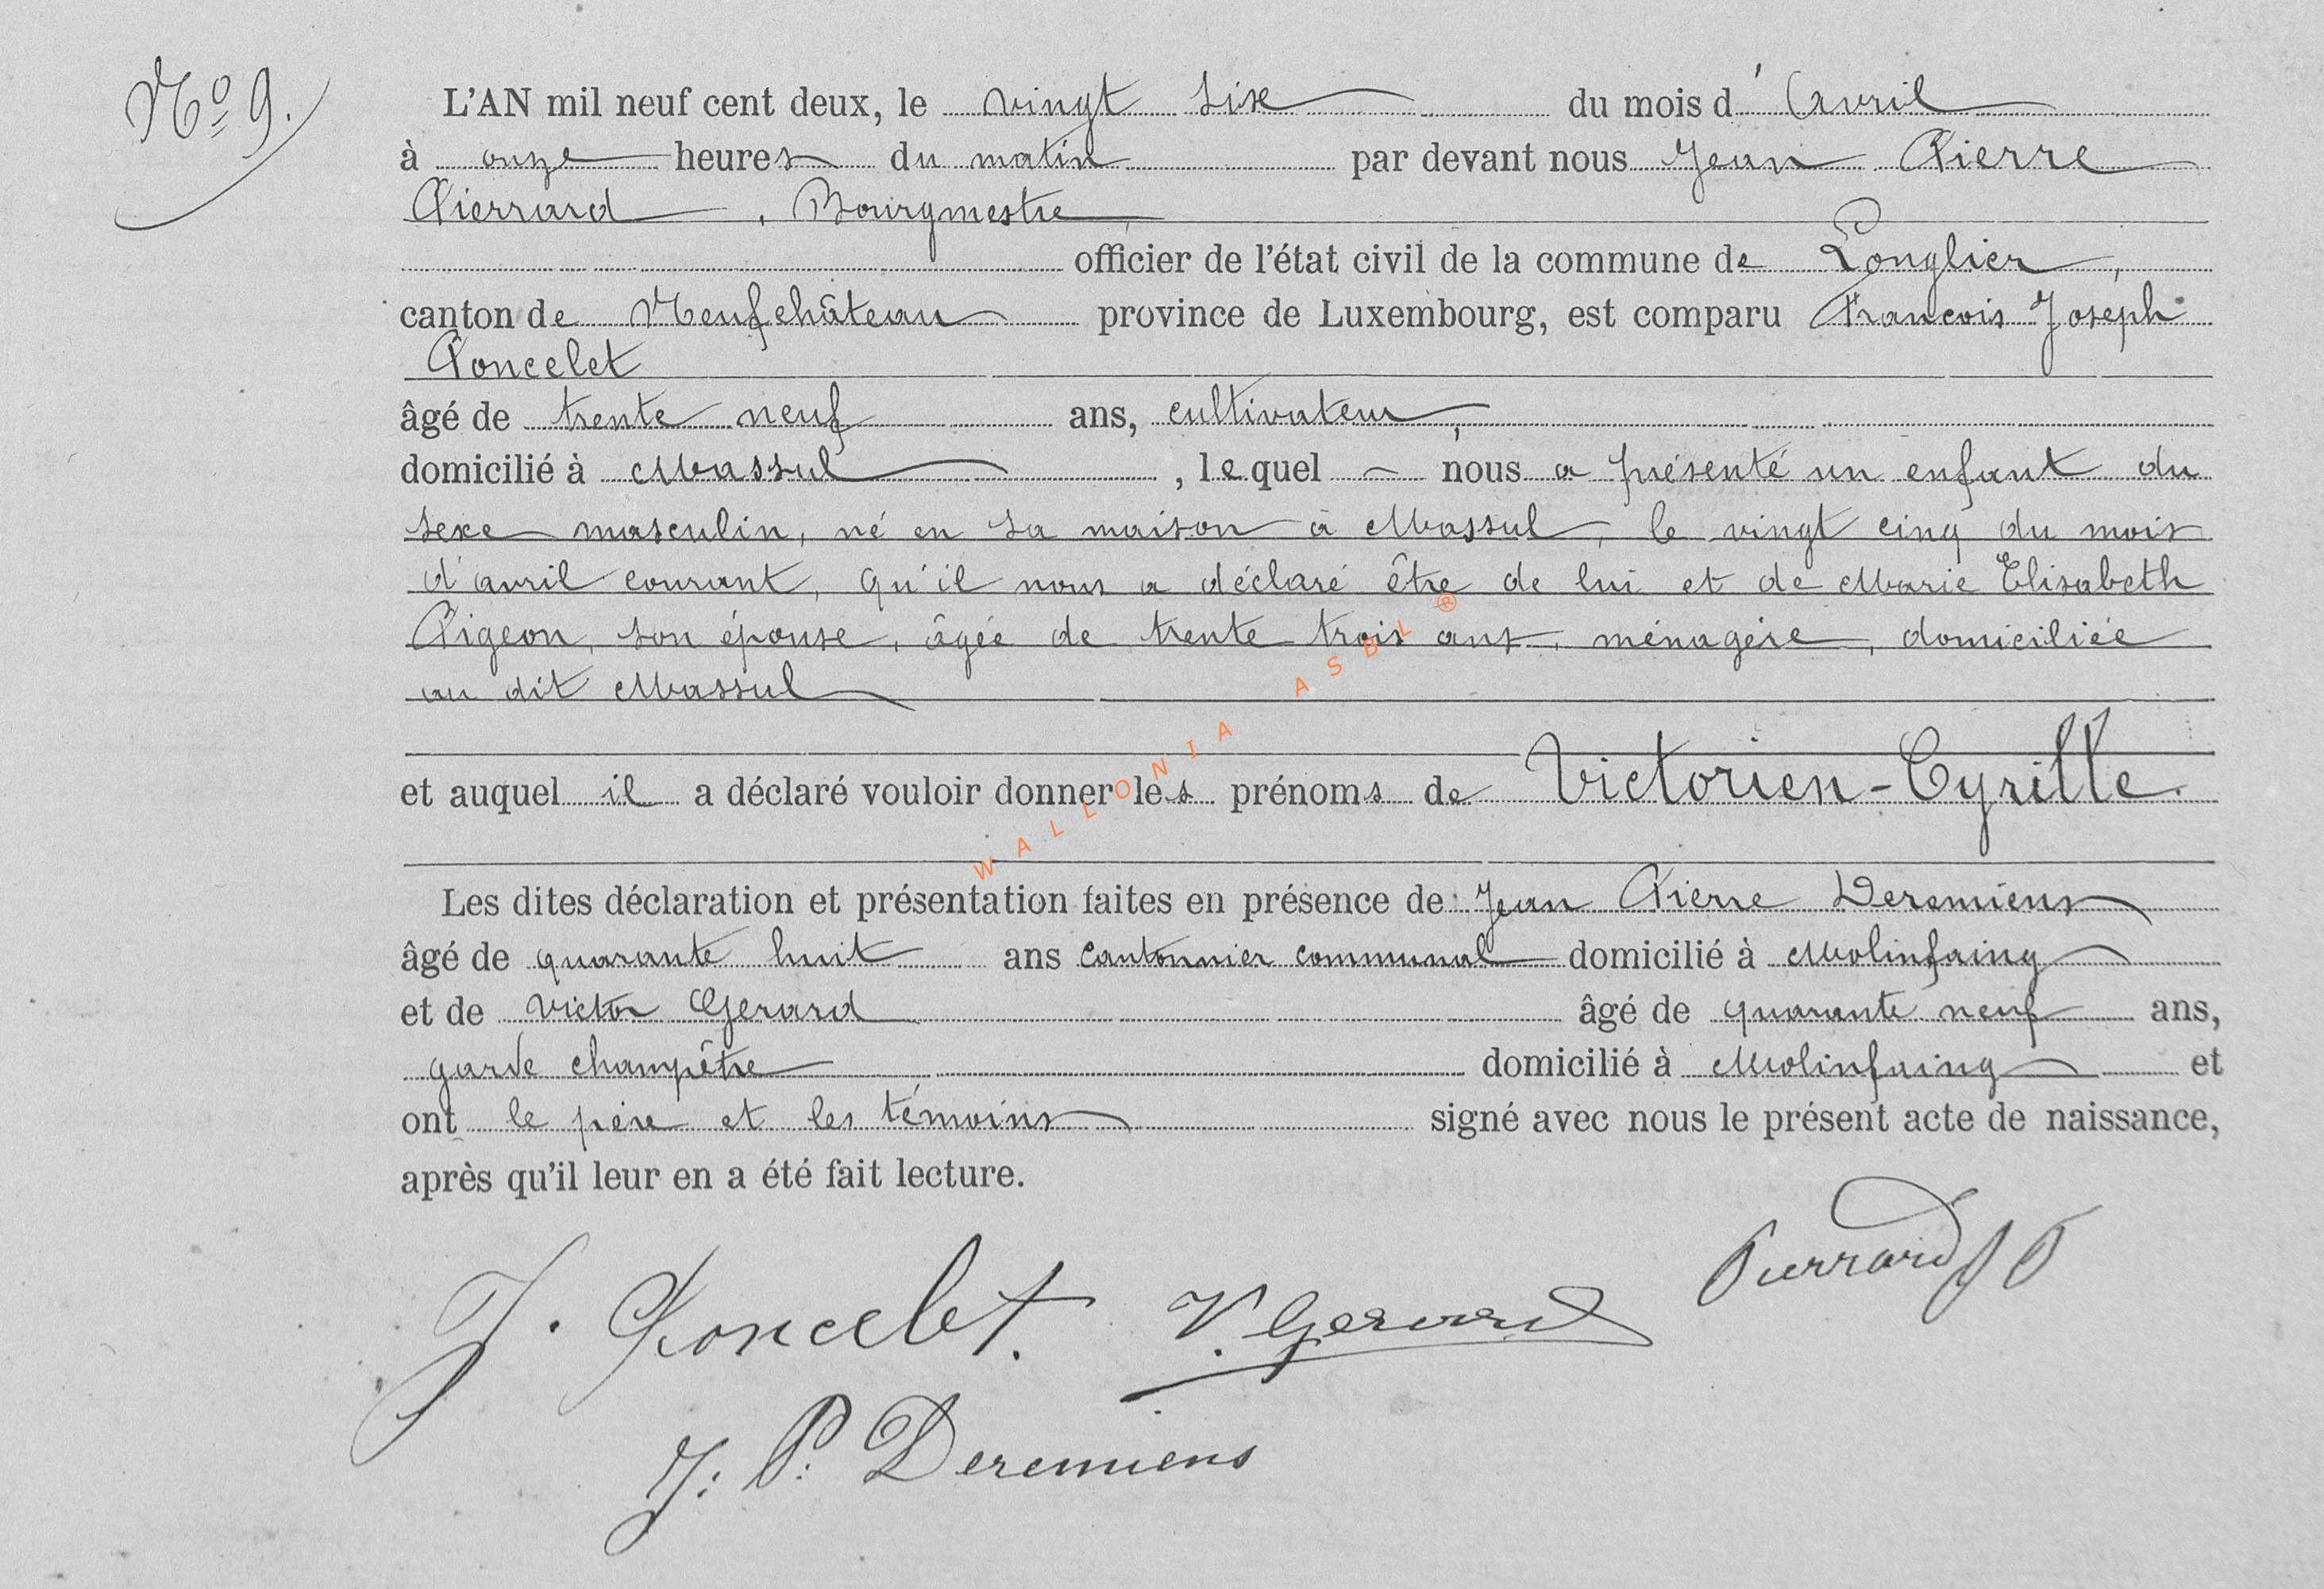 N° 9.
L'AN mil neuf cent deux, le vingt six du mois d'avril
à onze heures du matin par devant nous Jean Pierre
Pierrard, Bourgmestre
officier de l'état civil de la commune de Longlier,
canton de Neufchâteau province de Luxembourg, est comparu Francois Joseph
Poncelet
âgé de trente neuf ans, cultivateur,
domicilié à Massul, lequel nous a présenté un enfant du
sexe masculin, né en sa maison à Massul, le vingt cinq du mois
d'avril courant, qu'il nous a déclaré être de lui et de Marie Elisabeth
Pigeon, son épouse, âgée de trente trois ans, ménagère, domiciliée
au dit Massul
et auquel il a déclaré vouloir donner les prénoms de Victorien-Cyrille.
Les dites déclaration et présentation faites en présence de Jean Pierre Deremiens
âgé de quarante huit ans cantonnier communal domicilié à Molinfaing
et de Victor Gerard âgé de quarante neuf ans,
garde champêtre domicilié à Molinfaing et
ont le père et les témoins signé avec nous le présent acte de naissance,
après qu'il leur en a été fait lecture.
J. Poncelet. V. Gerard Pierrard JP
J. P. Deremiens
WALLONIA ASBL ®